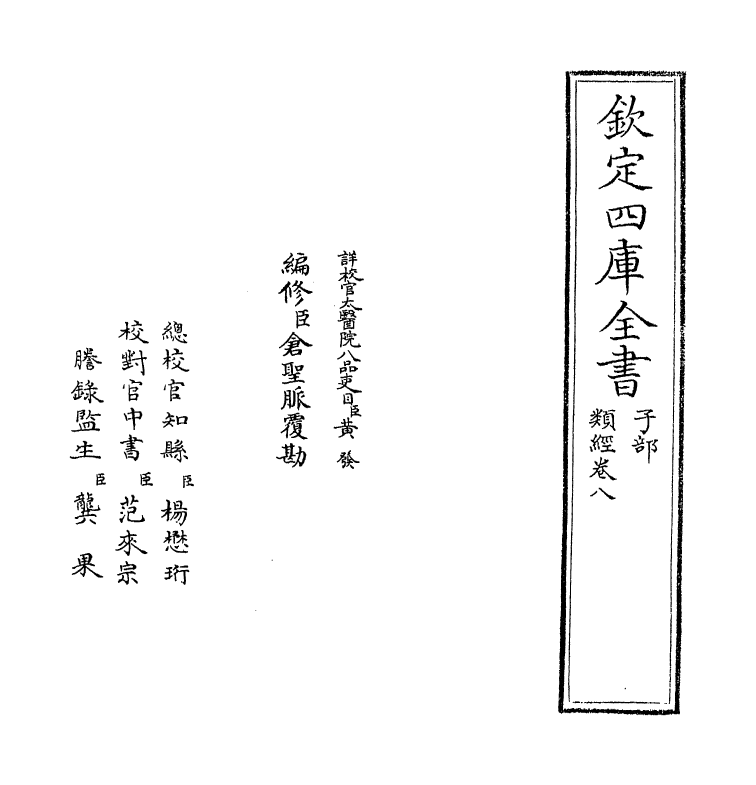 欽定四庫全書
子部
類經卷八
詳校官太醫院八品吏目臣黃發
編修臣倉聖脈覆勘
總校官知縣臣楊懋珩
校對官中書臣范來宗
謄錄監生臣龔果